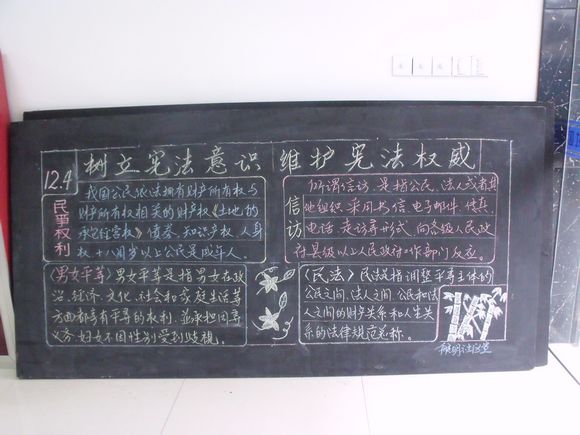 树立宪法意识 维护宪法权威
12.4
民事权利
我国公民依法拥有财产所有权与
财产所有权相关的财产权《土地的
承包经营权》债券、知识产权、人身
权、十八周岁以上公民是成年人。
信访
所谓信访,是指公民、法人或者其
他组织采用书信、电子邮件、传真、
电话、走访等形式,向各级人民政
府县级以上人民政府工作部门反应。
〈男女平等〉男女平等是指男女在政
治、经济、文化、社会和家庭生活等
方面都享有平等的权利,並承担同等
义务,妇女不因性别受到歧视。
〈民法〉民法是指调整平等主体的
公民之间、法人之间、公民和法
人之间的财产关系和人生关
系的法律规范总称。